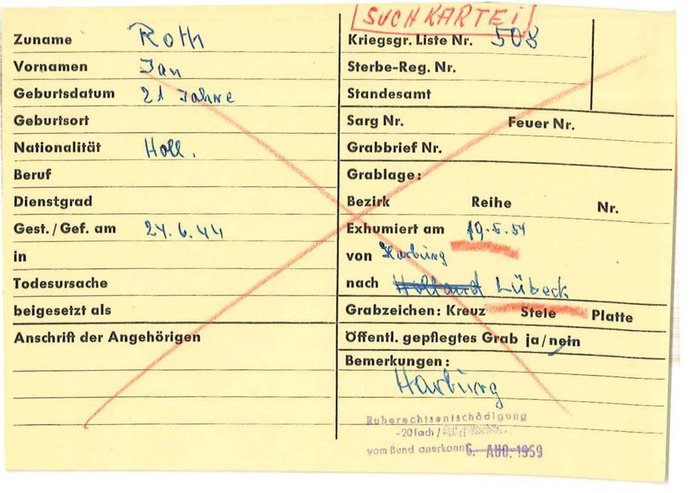 SUCHKARTEI
Zuname Roth
Vornamen Jan
Geburtsdatum 21 Jahre
Geburtsort
Nationalität Holl.
Beruf
Dienstgrad
Gest./Gef. am 24.6.44
in
Todesursache
beigesetzt als
Anschrift der Angehörigen
Kriegsgr. Liste Nr. 508
Sterbe-Reg. Nr.
Standesamt
Sarg Nr. Feuer Nr.
Grabbrief Nr.
Grablage:
Bezirk Reihe Nr.
Exhumiert am 19.5.51
von Harburg
nach Holland Lübeck
Grabzeichen: Kreuz Stele Platte
Öffentl. gepflegtes Grab ja/nein
Bemerkungen:
Harburg
Ruherechtsentschädigung
-20fach/
vom Bund anerkannt 6. AUG. 1959